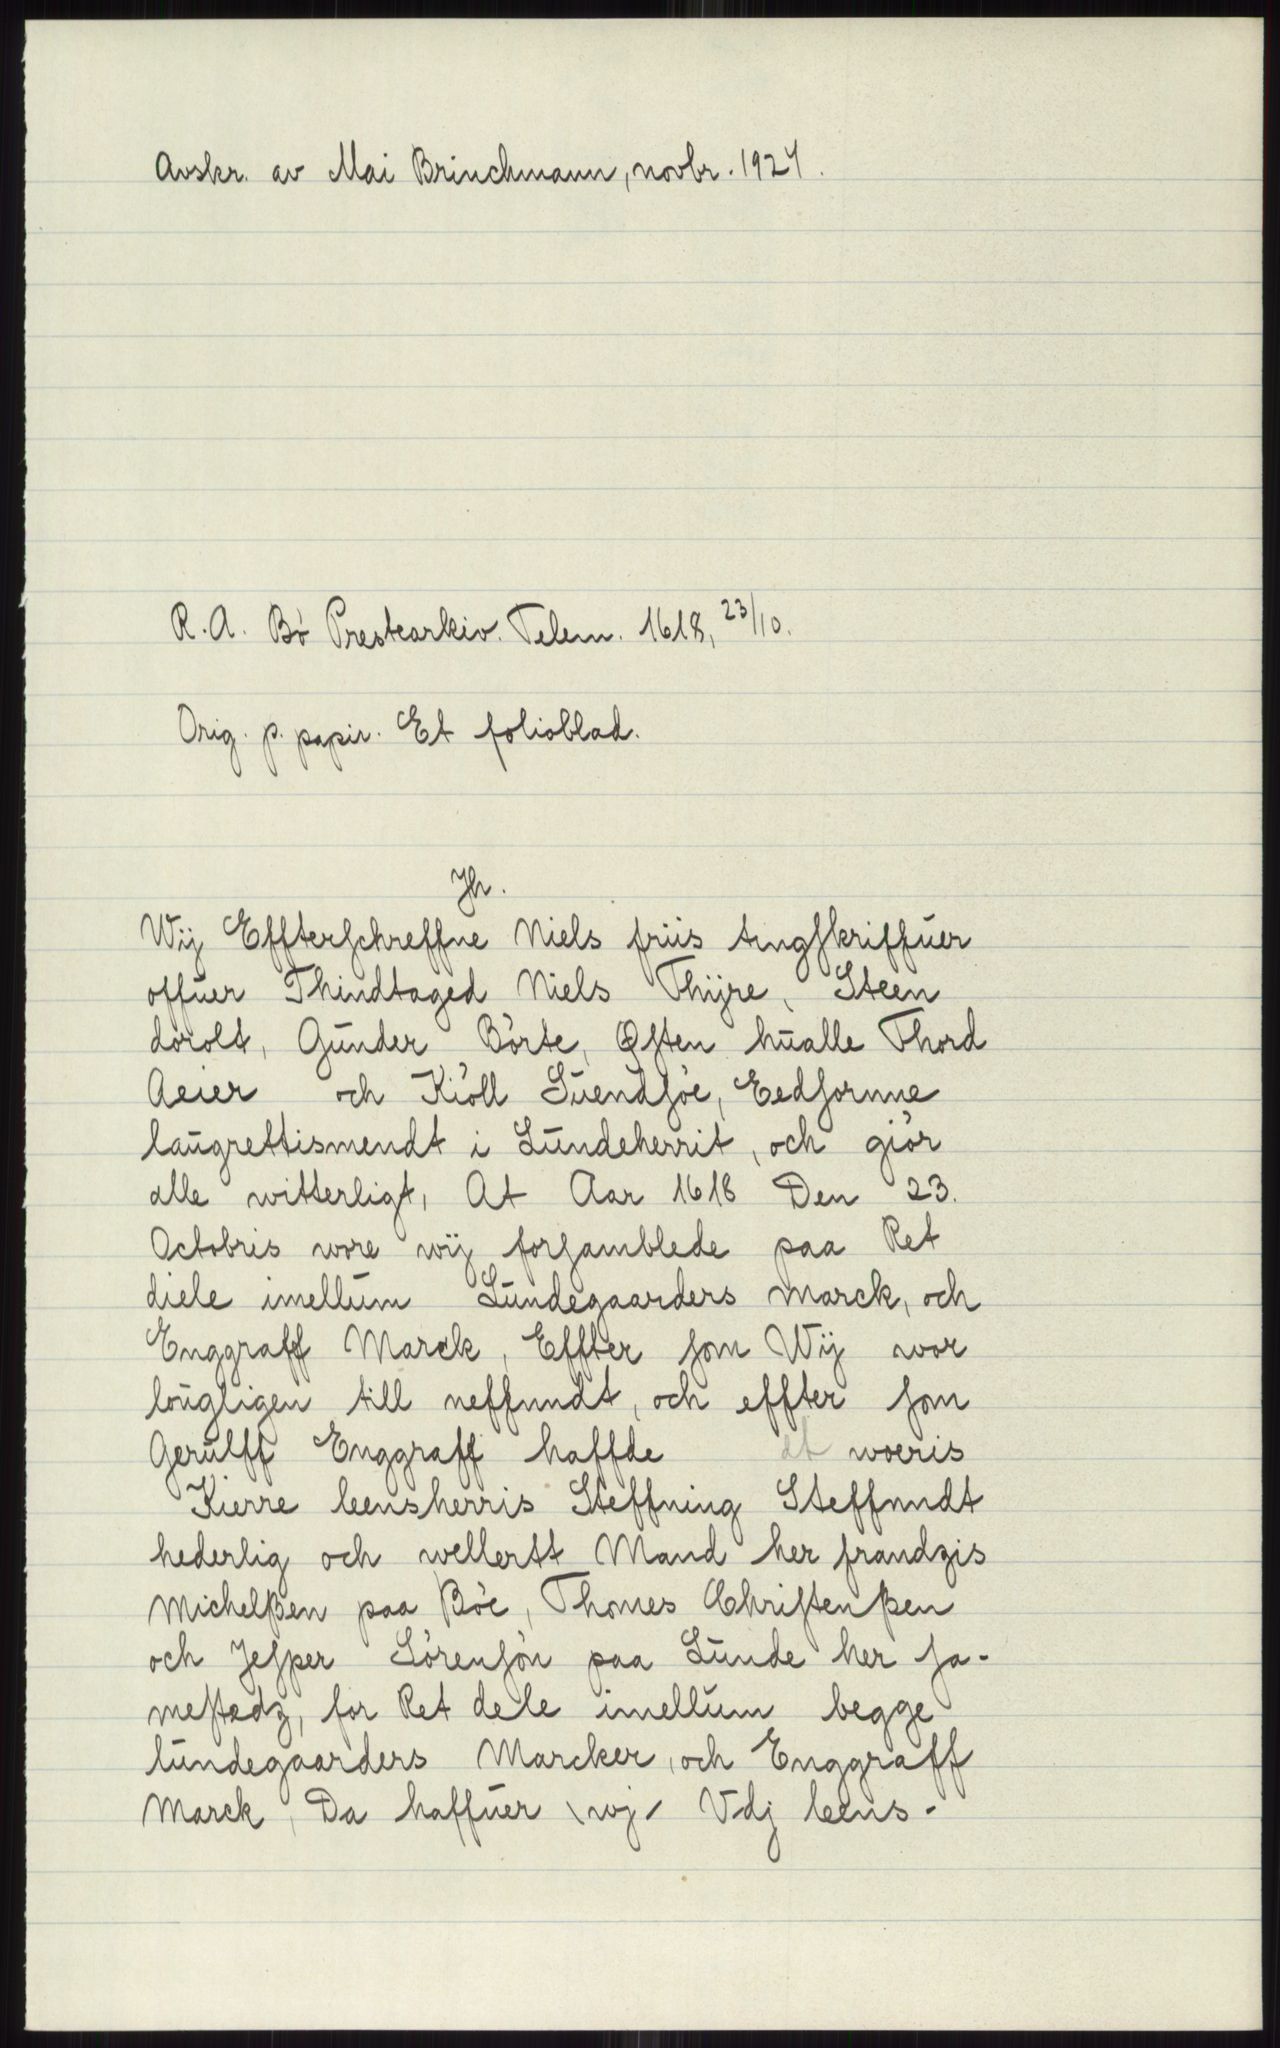 Avskr. av Mai Brinchmann, novbr. 1927.
R. A. Bö Prestearkiv. Telem. 1618, 23/10.
Orig. p. papir. Et folioblad.
Jh.
Wij Effterschreffne Niels friis tingskriffuer
offuer Thindtaged Niels Thijre, Steen
dorolt, Gunder Börte, Østen hualle Thord
Aeier och Kiöll Suendsöe, Eedsornne
laugrettismendt i Lundeherrit, och giör
alle witterligt, At Aar 1618 Den 23.
Octobris wore wij forsamblede paa Ret
diele imellum Lundegaarders Marck, och
Enggraff Marck, Effter som Wij wor
lougligen till neffnndt, och effter som
Gerulff Enggraff haffde dt woeris
Kierre leensherris Steffning Steffnndt
hederlig och wellertt Mand her frandzis
Michelßen paa Böe, Thomes Christenßen
och Jesper Sörensön paa Lunde her sa-
mestedz, for Ret dele imellum begge
lundegaarders Marcker, och Enggraff
Marck, Da haffuer \wj/ Vdj leens-